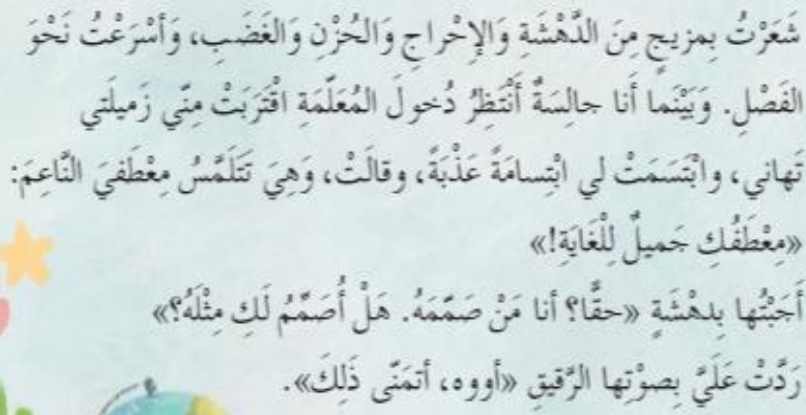 شَعَرْتُ بِمزيجٍ مِنَ الدَّهْشَةِ وَالإِحْراجِ وَالحُزْنِ وَالغَضَبِ، وَأَسْرَعْتُ نَحْوَ
الفَصْلِ. وَبَيْنَما أَنا جالِسَةٌ أَنْتَظِرُ دُخولَ المُعَلِّمَةِ اقْتَرَبَتْ مِنّي زَميلَتي
تَهاني، وابْتَسَمَتْ لي ابْتِسامَةً عَذْبَةً، وقالَتْ، وَهِيَ تَتَلَمَّسُ مِعْطَفيَ النَّاعِمَ:
«مِعْطَفُكِ جَميلٌ لِلْغَايَةِ!»
أَجَبْتُها بِدهْشَةٍ «حقًّا؟ أنا مَنْ صَمَّمَهُ. هَلْ أُصَمِّمُ لَكِ مِثْلَهُ؟»
رَدَّتْ عَلَيَّ بِصوْتِها الرَّقيقِ «أووه، أتمَنّى ذَلِكَ».